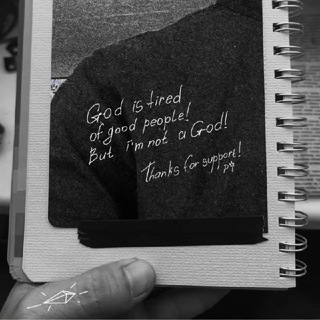 God is tired
of good people!
But i'm not a God!
Thanks for support!